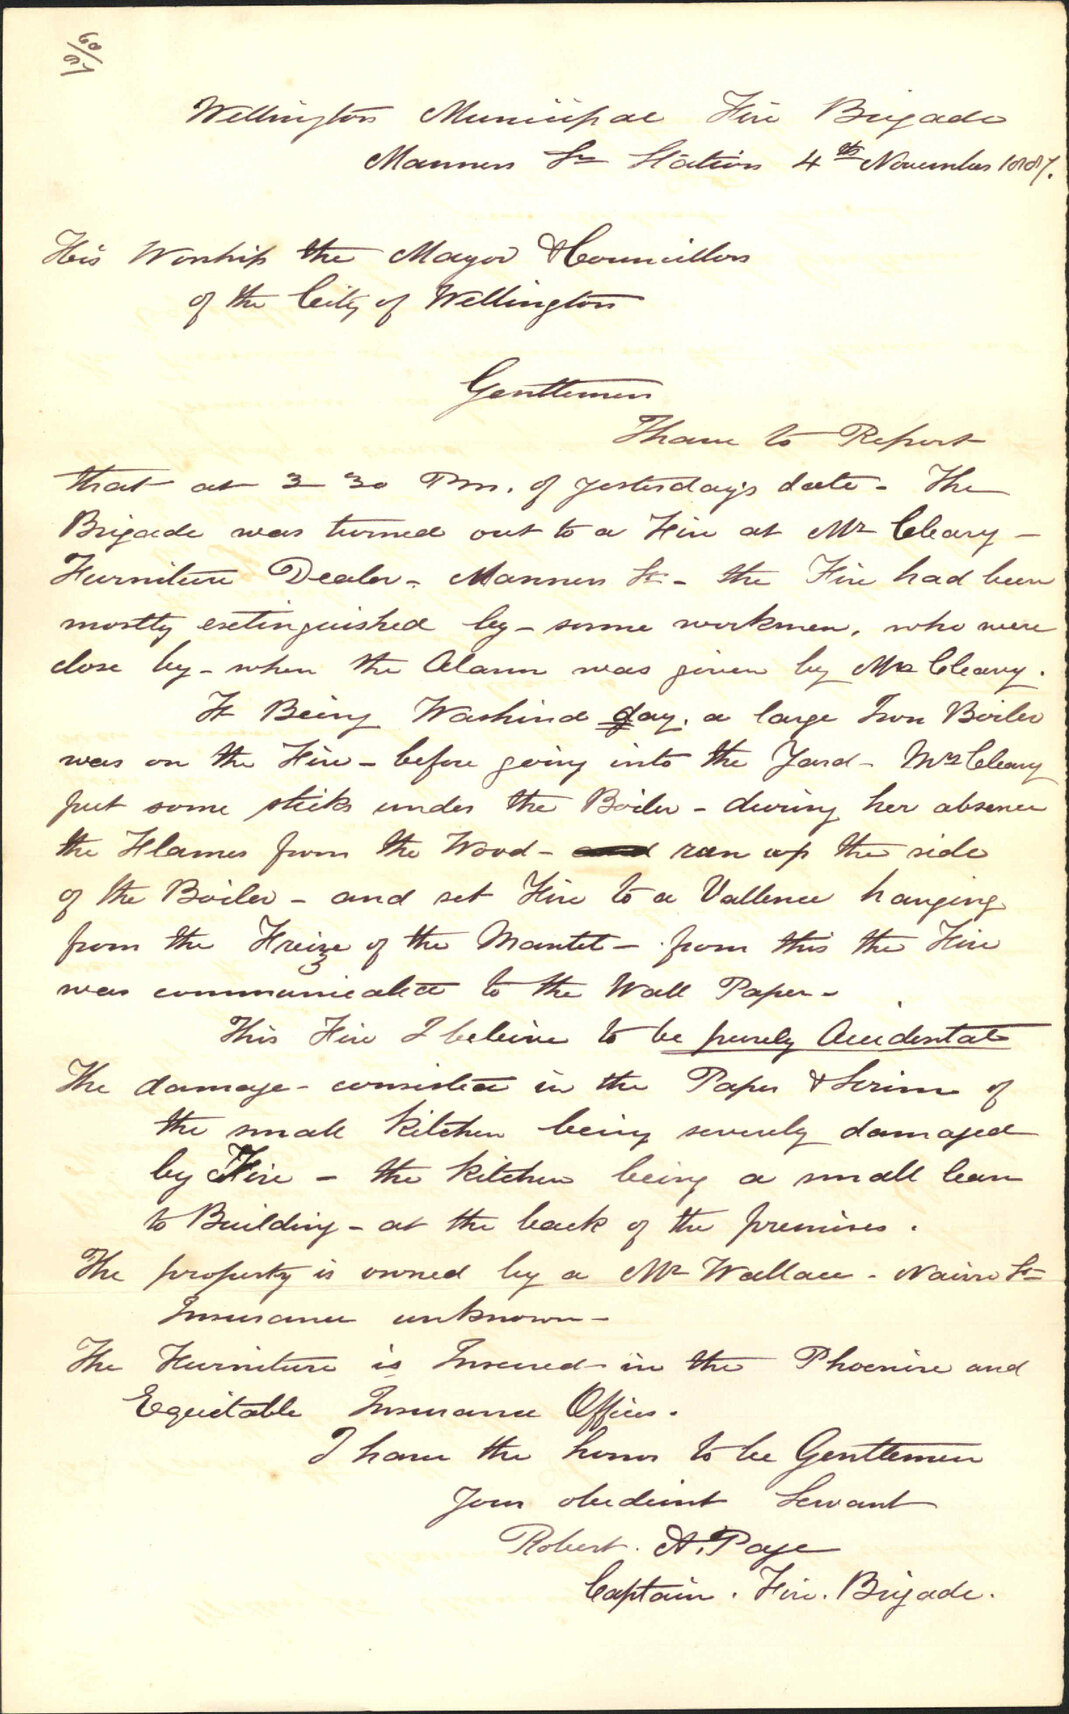 60/67
Wellington Municipal Fire Brigade
Manners St Station 4th November 1887.
His Worship the Mayor & Councillors
of the City of Wellington
Gentlemen
I have to Report
that at 3-30 Pm. of yesterday's date - The
Brigade was turned out to a Fire at Mr Cleary -
Furniture Dealer - Manners St - the Fire had been
mostly extinguished by - some workmen, who were
close by - when the Alarm was given by Mrs Cleary.
It Being Washind day. a large Iron Boiler
was on the Fire - before going into the Yard - Mrs Cleary
put some sticks under the Boiler - during her absence
the Flames from the Wood - and ran up the side
of the Boiler - and set Fire to a Vallence hanging
from the Freize of the Mantel - from this the Fire
was communicated to the Wall Paper -
This Fire I beleive to be purely Accidental
The damage - consisted in the Paper & Scrim of
the small Kitchen being severely damaged
by Fire - the Kitchen being a small lean
to Building - at the back of the premises.
The property is owned by a Mr Wallace - Nairn St
Insurance unknown -
The Furniture is Insured in the Phoenix and
Equitable Insurance Offices.
I have the honor to be Gentlemen
Your obedient Servant
Robert. A. Page
Captain. Fire. Brigade.